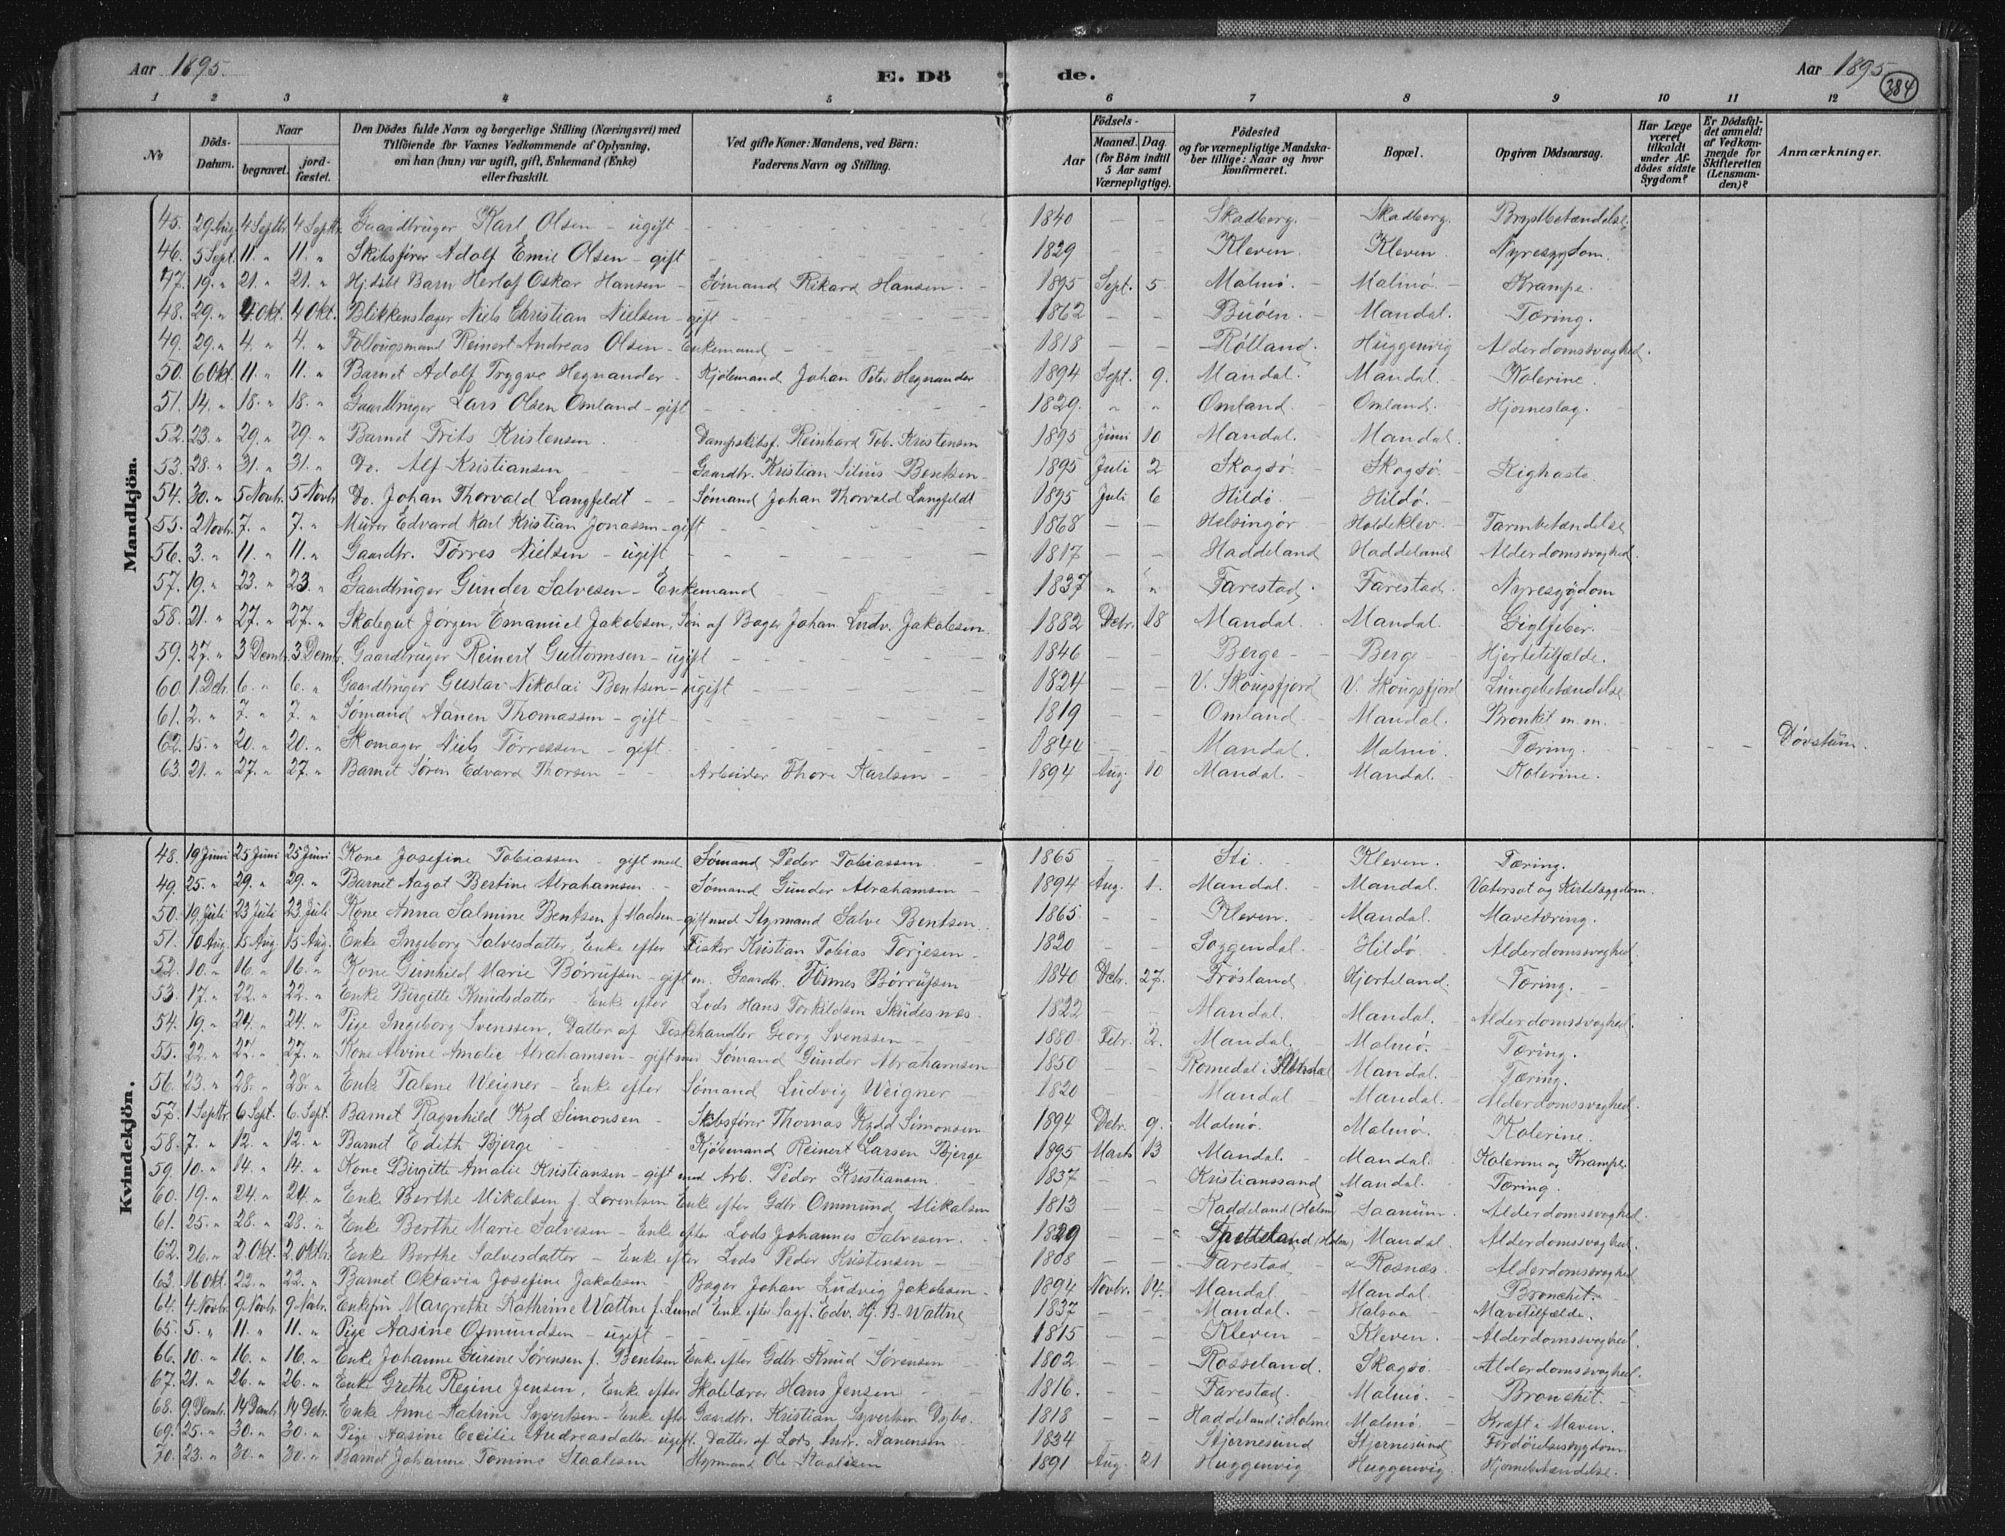 Aar 1895. E. Dö de. Aar 1895 384
1 2 3 4 5 6 7 8 9 10 11 12
No Döds-Datum. Naar begravet. jordfæstet. Den Dödes fulde Navn og borgerlige Stilling (Næringsvei) med Tilföiende for Voxnes Vedkommende af Oplysning, om han (hun) var ugift, gift, Enkemand (Enke) eller fraskilt. Ved gifte Koner: Mandens, ved Börn: Faderens Navn og Stilling. Aar Födsels- Maaned. Dag. (for Börn indtil 5 Aar samt Værnepligtige). Födested og for værnepligtige Mandskaber tillige: Naar og hvor konfirmeret. Bopæl. Opgiven Dödsaarsag. Har Læge været tilkaldt under Afdödes sidste Sygdom? Er Dödsfaldet anmeldt af Vedkommende for Skifteretten (Lensmanden)? Anmærkninger.
Mandkjön.
45. 29 Aug 4 Septbr 4 Septbr. Gaardbruger Karl Olsen - ugift - 1840 Skadberg. Skadberg. Brystbetændelse
46. 5 Sept. 11. " 11. " Skibsfører Adolf Emil Olsen - gift 1829 Kleven. Kleven. Nyresygdom.
47. 19. " 21. " 21. " Hjdøbt Barn Herlof Oskar Hansen - Sømand Rikard Hansen. 1895 Sept. 5. Malmø. Malmø. Krampe.
48. 29. " 4 Okt. 4 Okt. Blikkenslager Niels Christian Nielsen - gift 1862 Büöen. Mandal. Tæring.
49. 29. " 4. " 4. " Follougsmand Reinert Andreas Olsen - Enkemand 1818 Rølland. Huggenvig Alderdomssvaghed.
50. 6 Okt. 11. " 11. " Barnet Adolf Trygve Hegnander - Kjøbmand Johan Peter Hegnander 1894 Sept. 9. Mandal. Mandal. Kolerine.
51. 14. " 18. " 18. " Gaardbruger Lars Olsen Omland - gift 1829. " " Omland. Omland. Hjerneslag.
52. 23. " 29. " 29. " Barnet Frits Kristensen. Dampskibsf. Reinhard Tob. Kristensen 1895 Juni 10 Mandal. Mandal.
53. 28. " 31. " 31. " Do. Alf Kristiansen Gaardbr. Kristian Silius Bentsen 1895 Juli 2 Skogsø. Skogsø. Kighoste.
54. 30. " 5 Novbr. 5 Novbr Do. Johan Thorvald Langfeldt - Sømand Johan Thorvald Langfeldt 1895 Juli 6 Hildø. Hildø.
55. 2 Novbr. 7. " 7. " Murer Edvard Karl Kristian Jonassen - gift 1868 Helsingør Holdeklev. Tarmbetændelse
56. 3. " 11. " 11. " Gaardbr. Tørres Nielsen - ugift 1817 Haddeland Haddeland Alderdomssvaghed.
57. 19. " 23. " 23. " Gaardbruger Gunder Salvesen - Enkemand 1837 " " Farestad. Farestad. Nyresygdom
58. 21. " 27. " 27. " Skolegut Jørgen Emanuel Jakobsen, Søn af Bager Johan Ludv. Jakobsen. 1882 Dcbr. 18 Mandal. Mandal. Gigtfeber.
59. 27. " 3 Dcmbr. 3 Dcmbr. Gaardbruger Reinert Guttormsen - ugift 1846 Berge Berge Hjertetilfælde.
60. 1 Dcbr. 6. " 6. " Gaardbruger Gustav Nikolai Bentsen - ugift 1824 V. Skougsfjord V. Skougsfjord Lungebetændelse
61. 2. " 7. " 7. " Sømand Aanen Thomassen - gift 1819 Omland. Mandal. Bronkit m.m.
62. 15. " 20. " 20. " Skomager Niels Tørressen - gift. 1844 Mandal. Malmø. Tæring. Døvstum.
63. 21. " 27. " 27. " Barnet Søren Edvard Thorsen - Arbeider Thore Karlsen 1894 Aug. 10 Mandal. Mandal. Kolerine.
Kvindekjön.
48. 19 Juni 25 Juni 25 Juni Kone Josefine Tobiassen - gift med Sømand Peder Tobiassen 1865 Sti. Kleven. Tæring.
49. 25. " 29. " 29. " Barnet Aagot Bertine Abrahamsen - Sømand Gunder Abrahamsen 1894 Aug. 1. Mandal. Mandal. Vatersot og Kirtelsygdom.
50. 19 Juli 23 Juli 23 Juli Kone Anna Salmine Bentsen f. Madsen - gift med Styrmand Salve Bentsen 1865 Kleven. Mandal. Mavetæring.
51. 10 Aug. 15 Aug. 15 Aug. Enke Ingeborg Salvesdatter, Enke efter Fisker Kristian Tobias Torjesen 1820 Soggendal. Hildø. Alderdomssvaghed.
52. 10. " 16. " 16. " Kone Gunhild Marie Børrufsen - gift m. Gaardbr. Tønnes Børrufsen 1840 Dcbr. 27. Frøsland. Hjorteland. Tæring.
53. 17. " 22. " 22. " Enke Birgitte Knudsdatter - Enke efter Lods Hans Torkildsen Skudesnæs. 1822 Mandal. Mandal. Alderdomssvaghed
54. 19. " 24. " 24. " Pige Ingeborg Svenssen, Datter af Fiskehandler Georg Svenssen 1880 Febr. 2. Mandal. Malmø. Tæring.
55. 22. " 27. " 27. " Kone Alvine Amalie Abrahamsen - gift med Sømand Gunder Abrahamsen 1850 Romedal i Mandal. Tæring.
56. 23. " 28. " 28. " Enke Talene Weigner - Enke efter Sømand Ludvig Weigner 1820 Mandal Mandal. Alderdomssvaghed.
57. 1 Septbr. 6 Sept. 6 Sept. Barnet Ragnhild Kyd Simonsen Skibsfører Thomas Kydd Simonsen 1894 Dcbr. 9. Malmø. Malmø. Kolerine.
58. 7. " 12. " 12. " Barnet Edith Bjerge Kjøbmand Reinert Larsen Bjerge 1895 Marts 13 Mandal. Mandal. Kolerine og Krampe
59. 10. " 14. " 14. " Kone Birgith Amalie Kristiansen - gift med Arb. Peder Kristiansen 1837 Kristianssand Mandal. Tæring.
60. 19. " 24. " 24. " Enke Berthe Mikalsen f. Lorentsen Enke efter Gdbr. Ommund Mikalsen 1813 Haddeland (Holm) Saanum. Alderdomssvaghed.
61. 25. " 28. " 28. " Enke Berthe Marie Salvesen - Enke efter Lods Johannes Salvesen. 1829 (Holm) Mandal. Alderdomssvaghed.
62. 26. " 2 Okt. 2 Oktbr. Enke Berthe Salvesdatter - Enke efter Lods Peder Kristensen 1808 Farestad Rosnæs. Alderdomssvaghed
63. 16 Okt. 22. " 22. " Barnet Oktavia Josefine Jakobsen Bager Johan Ludvig Jakobsen 1894 Novbr. 14. Mandal. Mandal. Bronchit.
64. 4 Novbr. 9 Novbr. 9 Novbr. Enkefru Margrethe Kathrine Wattne f. Lund Enke efter Sagf. Edv. Hj. B. Wattne 1837 Mandal. Halsaa Mavetilfælde.
65. 5. " 11. " 11. " Pige Aasine Osmundsen - ugift 1815 Kleven Kleven. Alderdomssvaghed.
66. 10. " 16. " 16. " Enke Johanne Gurine Sørensen f. Bentsen Enke efter Gdbr. Knud Sørensen 1802 Rosseland. Skogsø Alderdomssvaghed.
67. 21. " 26. " 26. " Enke Grethe Regine Jensen, Enke efter Skolelærer Hans Jensen 1816. Farestad. Malmø. Bronchit.
68. 9 Dcmbr. 14 Dcmbr 14 Dcbr. Enke Anne Katrine Syvertsen - Enke efter Gaardbr. Kristian Syvertsen Dybo. 1818 Haddeland i Holme Malmø. Kræft i Maven.
69. 25. " 30. " 30. " Pige Aasine Cecilie Andreasdatter - ugift. Datter af Lods Andr. Aanensen 1834 Stjernesund Stjernesund Fordøielsessygdom.
70. 23. " 30. " 30. " Barnet Johanne Tomine Staalesen Styrmand Ole Staalesen 1891 Aug. 21 Huggenvig Huggenvig Hjernebetændelse.